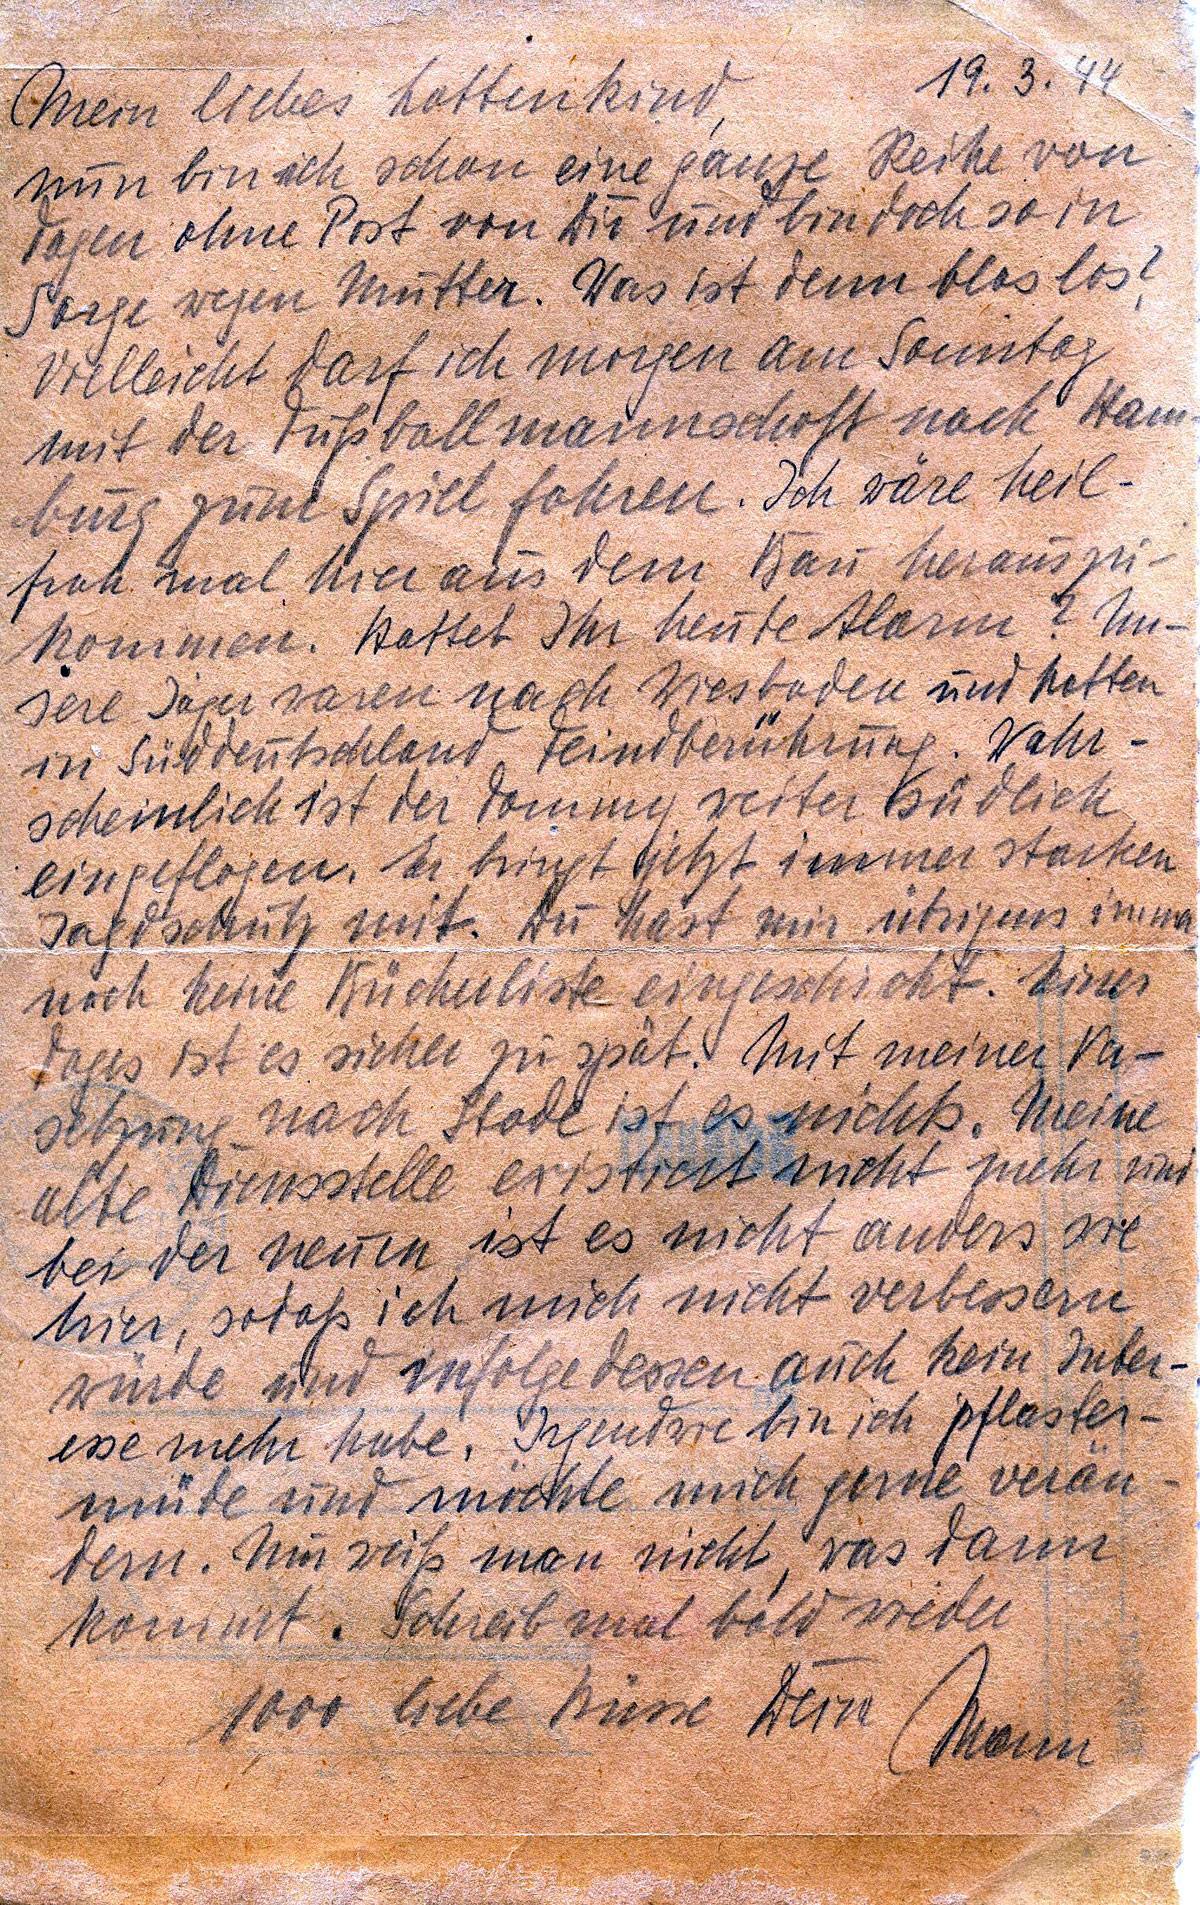 19. 3. 44
Mein liebes Kattenkind,
nun bin ich schon eine ganze Reihe von
Tagen ohne Post von Dir und bin doch so in
Sorge wegen Mutter. Was ist denn blos los?
Vielleicht darf ich morgen am Sonntag
mit der Fußballmannschaft nach Ham
burg zum Spiel fahren. Ich wäre heil-
froh mal hier aus dem Bau herauszu-
kommen. Hattet Ihr heute Alarm? Un-
sere Jäger waren nach Wiesbaden und hatten
in Süddeutschland Feindberührung. Wahr-
scheinlich ist der Tommy weiter südlich
eingeflogen. Er bringt jetzt immer starken
Jagdschutz mit. Du hast mir übrigens immer
noch keine Bücherliste eingeschickt. Eines
Tages ist es sicher zu spät. Mit meiner Ver-
setzung nach Stade ist es nichts. Meine
alte Dienststelle existiert nicht mehr und
bei der neuen ist es nicht anders wie
hier, sodaß ich mich nicht verbessern
würde und infolgedessen auch kein Inter-
esse mehr habe. Irgendwie bin ich pflaster-
müde und möchte mich gerne verän-
dern. Nur weiß man nicht, was dann
kommt. Schreib mal bald wieder
1000 liebe Küsse Dein Mann